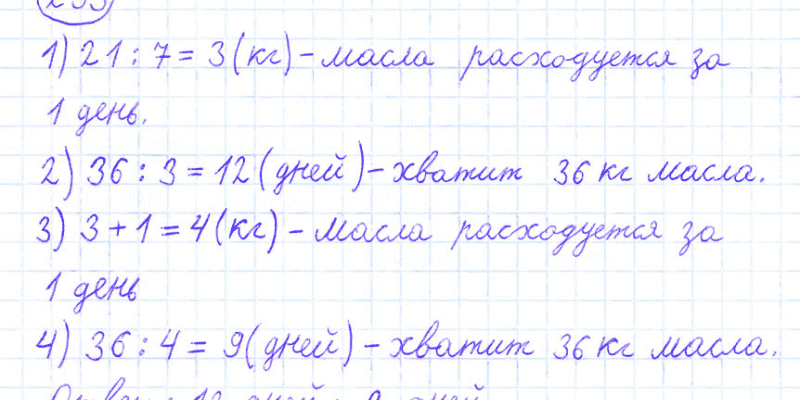 1) 21 : 7 = 3 (кг) – масла расходуется за
1 день.
2) 36 : 3 = 12 (дней) – хватит 36 кг масла.
3) 3 + 1 = 4 (кг) – масла расходуется за
1 день
4) 36 : 4 = 9 (дней) – хватит 36 кг масла.